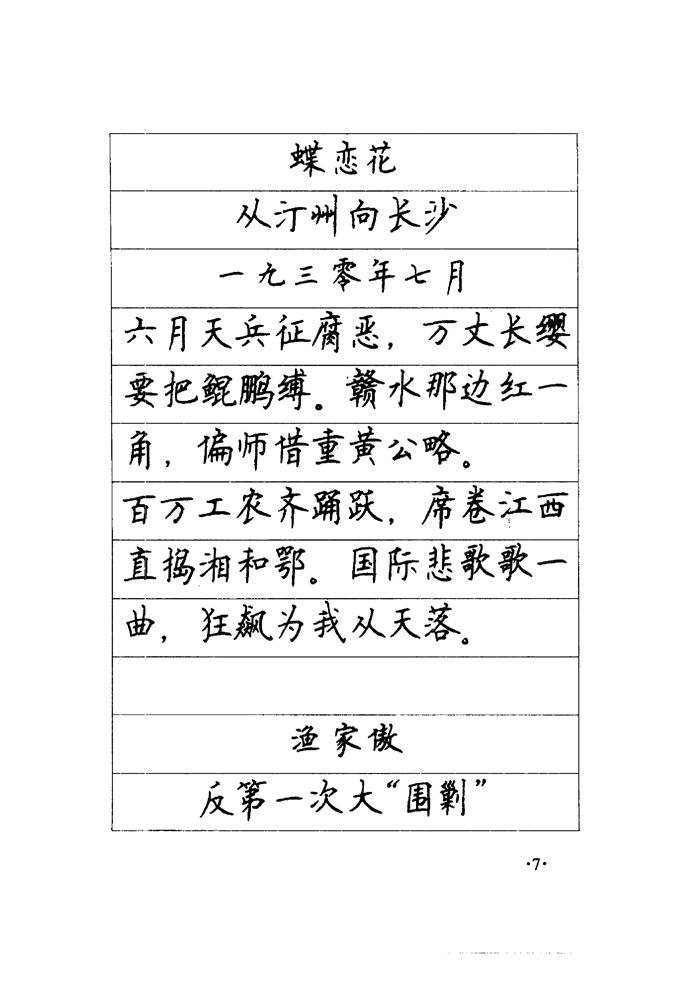 蝶恋花
从汀州向长沙
一九三零年七月
六月天兵征腐恶，万丈长缨
要把鲲鹏缚。赣水那边红一
角，偏师借重黄公略。
百万工农齐踊跃，席卷江西
直捣湘和鄂。国际悲歌歌一
曲，狂飙为我从天落。
渔家傲
反第一次大“围剿”
·7·